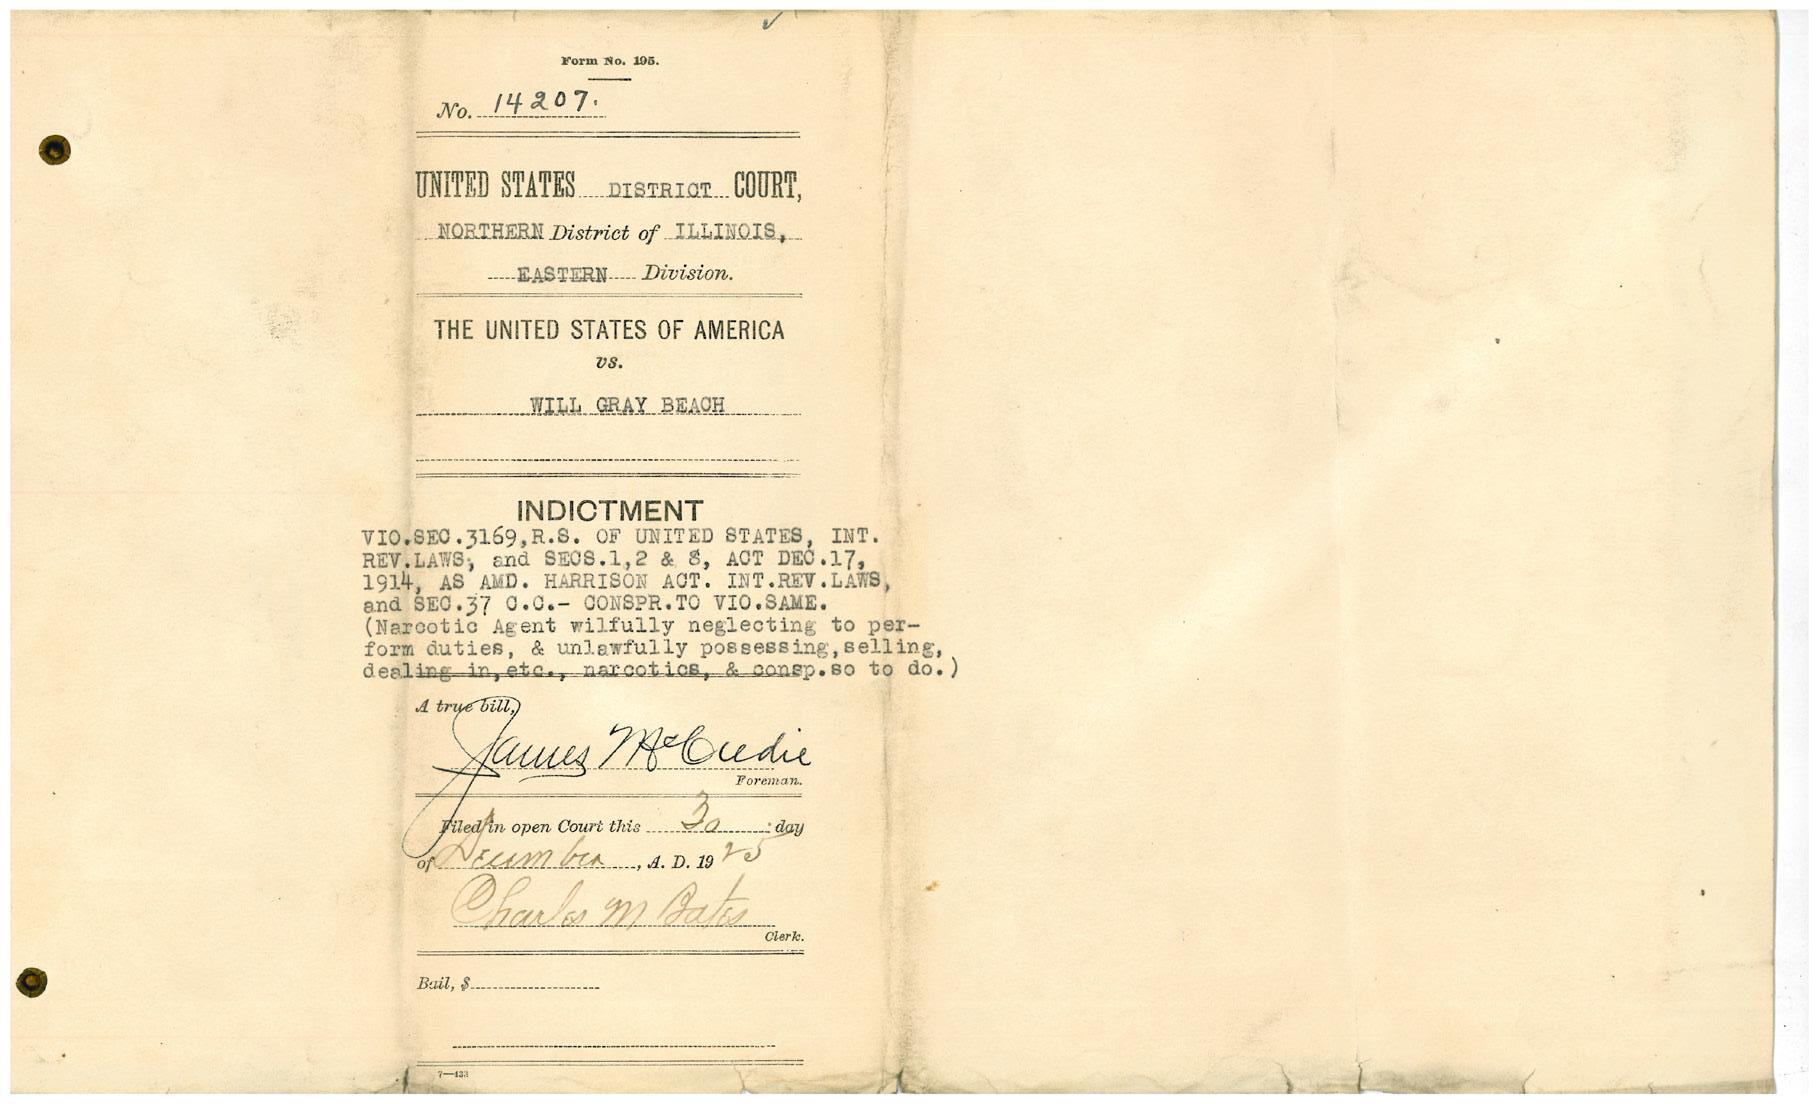 Form No. 195.
No. 14207.
UNITED STATES DISTRICT COURT,
NORTHERN District of ILLINOIS,
EASTERN Division.
THE UNITED STATES OF AMERICA
vs.
WILL GRAY BEACH
INDICTMENT
VIO.SEC.3169,R.S. OF UNITED STATES, INT.
REV.LAWS, and SECS.1,2 & 8, ACT DEC.17,
1914, AS AMD. HARRISON ACT. INT.REV.LAWS,
and SEC.37 C.C.- CONSPR.TO VIO.SAME.
(Narcotic Agent wilfully neglecting to per-
form duties, & unlawfully possessing,selling,
dealing in,etc., narcotics, & consp.so to do.)
A true bill,
James McCredie
Foreman.
Filed in open Court this 30 day
of December, A. D. 1925
Charles M Bates
Clerk.
Bail, $
7—133